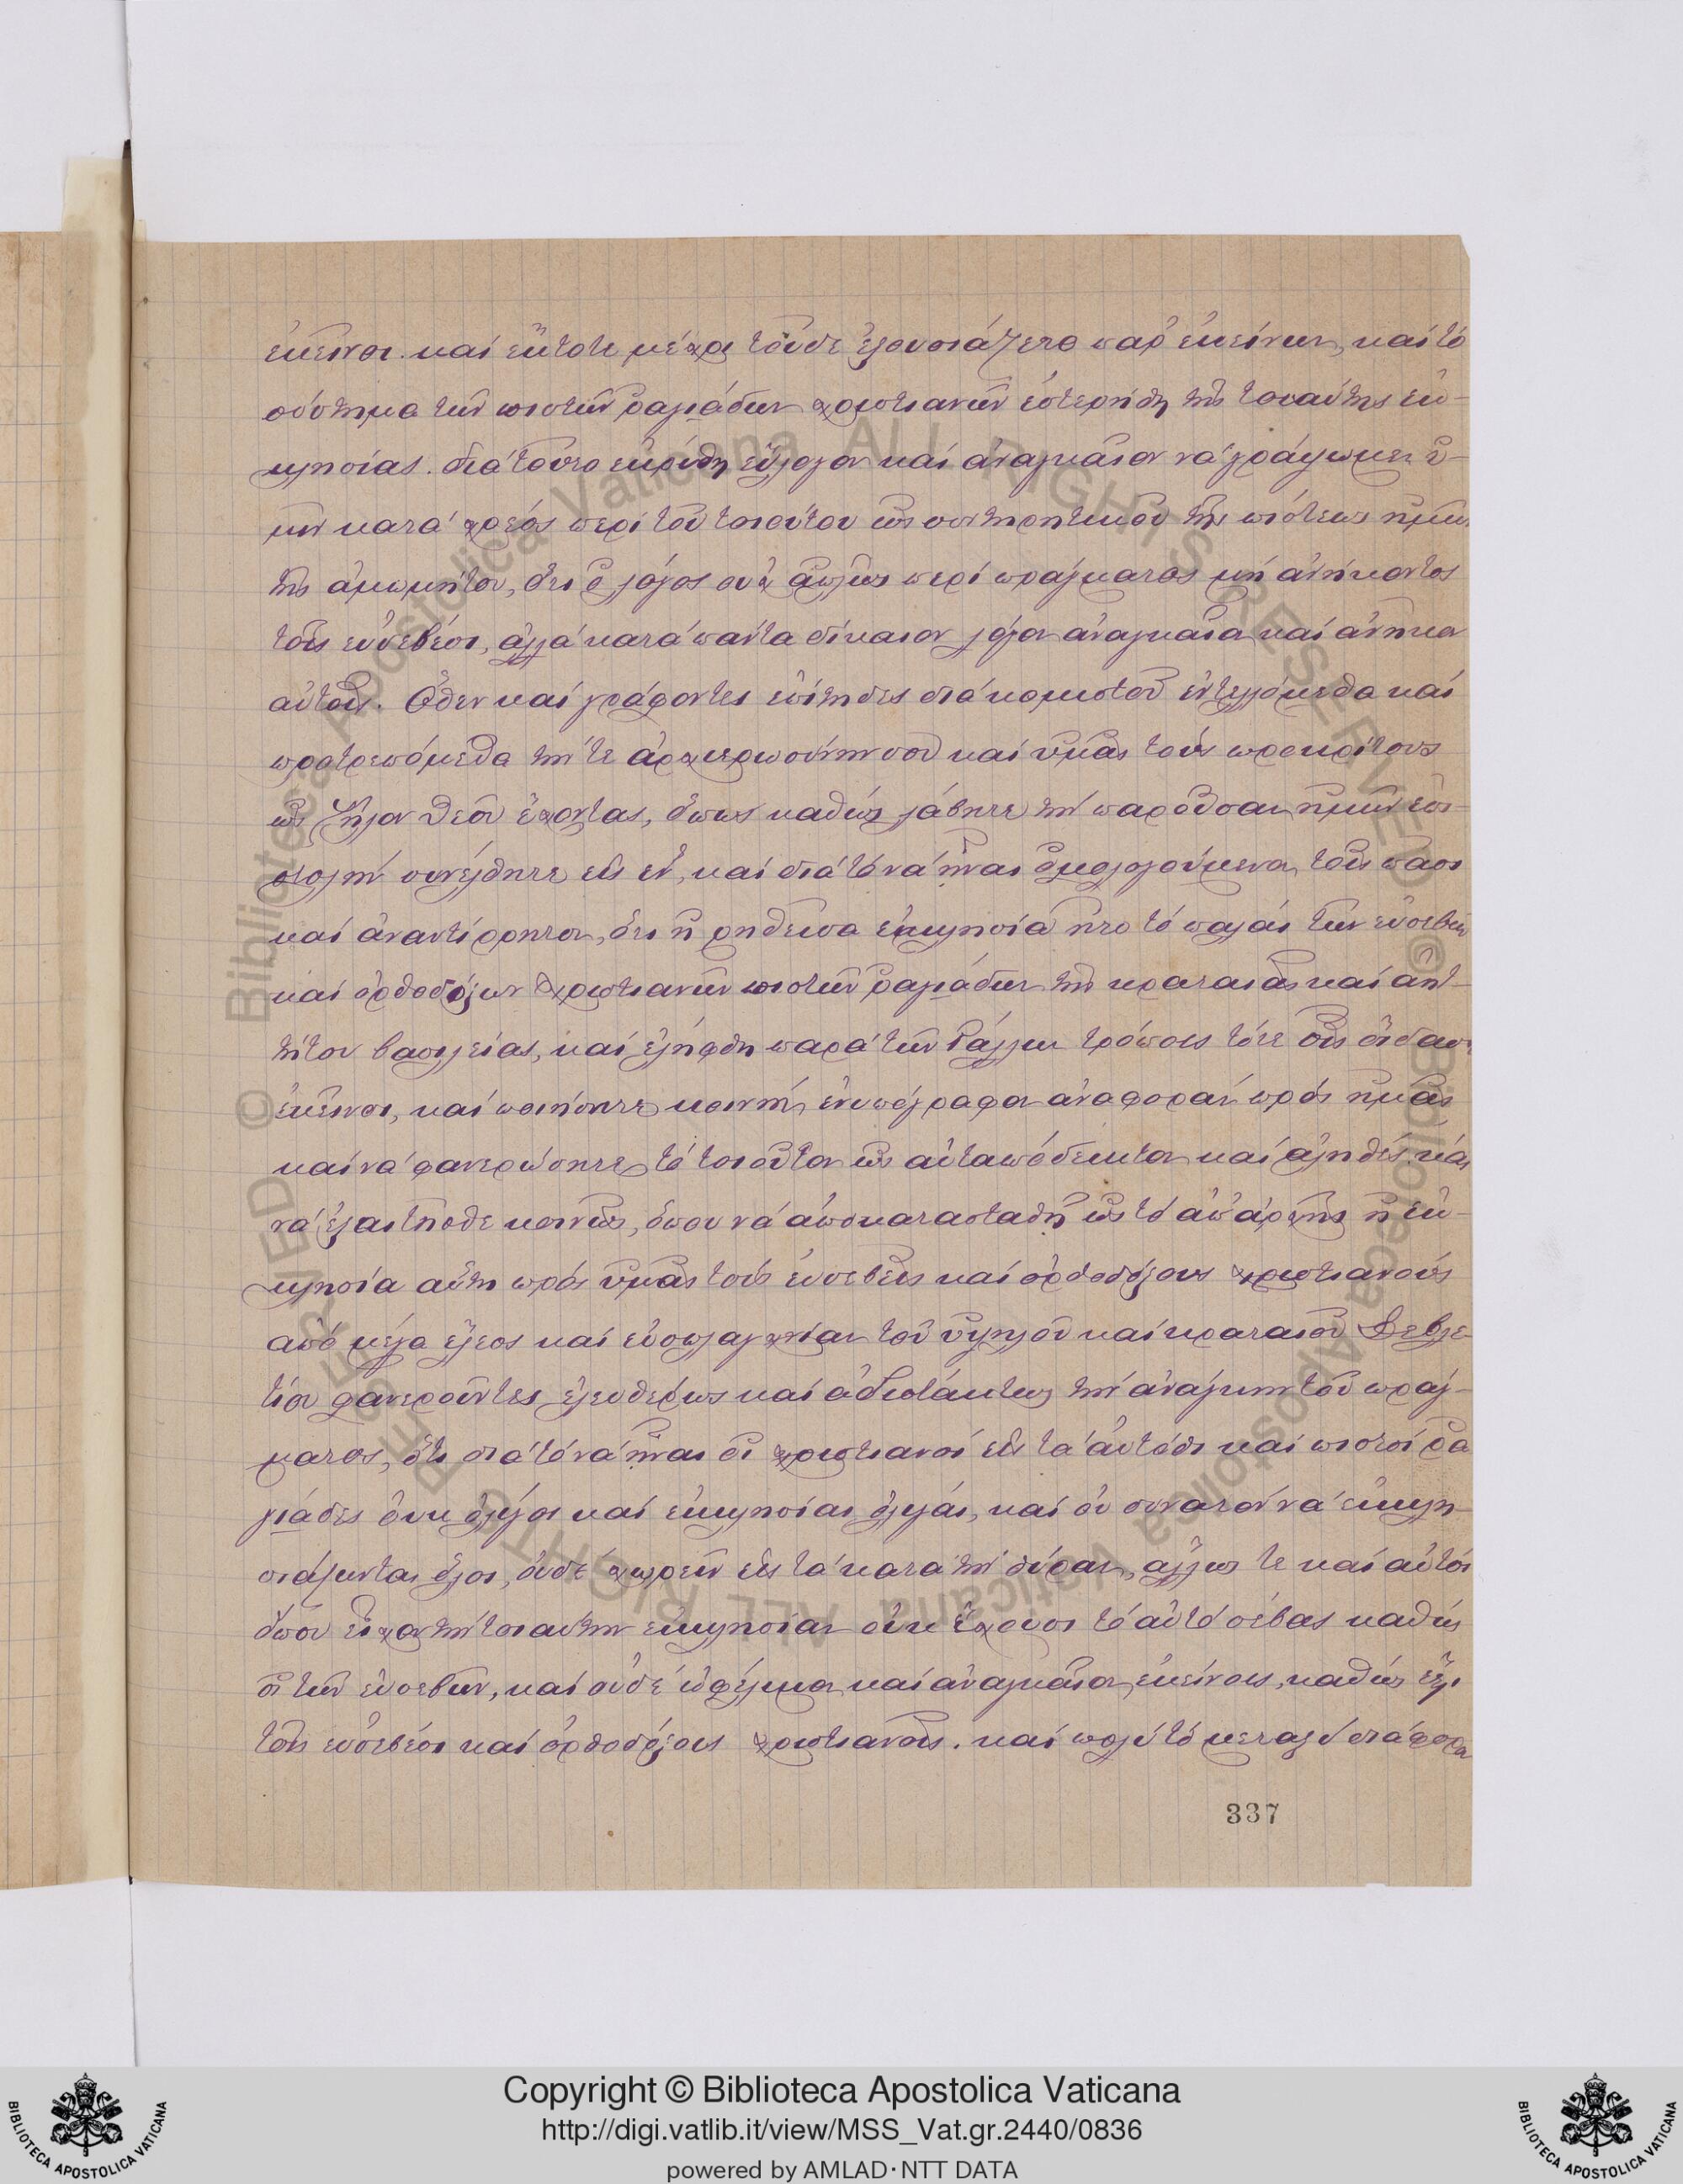 ἐκεῖνοι. καί ἔκτοτε μέχρι τοῦδε ἐξουσιάζετο παρ' ἐκείνων, καί τό
σύστημα τῶν πιστῶν ῥαγιάδων χριστιανῶν ἐστερήθη τῆς τοιαύτης ἐκ-
κλησίας. διά τοῦτο ἐκρίθη εὔλογον καί ἀναγκαῖον νά γράψωμεν ὑ-
μῖν κατά χρέος περί τοῦ τοιούτου ὡς συντηρητικοῦ τῆς πίστεως ἡμῶν
τῆς ἀμωμήτου, ὅτι ὁ λόγος οὐχ ἁπλῶς περί πράγματος μή ἀνήκοντος
τοῖς εὐσεβέσι, ἀλλά κατά πάντα δίκαιον λόγον ἀναγκαῖον καί ἀνῆκον
αὐτοῖς. Ὅθεν καί γράφοντες ἐπίτηδες διά κομιστοῦ ἐντελλόμεθα καί
προτρεπόμεθα τήν τε ἀρχιερωσύνην σου καί ὑμᾶς τούς προκρίτους
ὡς ζῆλον Θεοῦ ἔχοντας, ὅπως καθώς λάβητε τήν παροῦσαν ἡμῶν ἐπι-
στολήν συνέλθητε εἰς ἕν, καί διά τό νά ἦναι ὁμολογούμενον τοῖς πᾶσι
καί ἀναντίρρητον, ὅτι ἡ ρηθεῖσα ἐκκλησία ἦτο τό παλαι τῶν εὐσεβῶν
καί ὀρθοδόξων Χριστιανῶν πιστῶν ῥαγιάδων τῆς κραταιᾶς καί ἀητ-
τήτου βασιλείας, καί ἐλήφθη παρά τῶν Γάλλων τρόποις τότε οἷς οἴδασιν
ἐκεῖνοι, καί ποιήσητε κοινήν ἐνυπόγραφον ἀναφοράν πρός ἡμᾶς
καί νά φανερώσητε τό τοιοῦτον ὡς αὐταπόδεικτον καί ἀληθές. καί
νά ἐξαιτῆσθε κοινῶς, ὅπου νά ἀποκατασταθῇ ὡς τό ἀπ' ἀρχῆς ἡ ἐκ-
κλησία αὕτη πρός ὑμᾶς τούς εὐσεβεῖς καί ὀρθοδόξους χριστιανούς
ἀπό μέγα ἔλεος καί εὐσπλαγχνίαν τοῦ ὑψηλοῦ καί κραταιοῦ Δεβλε-
τίου φανεροῦντες ἐλευθερως καί ἀδιστάκτως τήν ἀνάγκην τοῦ πράγ-
ματος, ὅτι διά τό νά ἦναι οἱ χριστιανοί εἰς τά αὐτόθι καί πιστοί ῥα
γιάδες οὐκ ὀλίγοι καί ἐκκλησίαι ὀλίγαι, καί οὐ δυνατόν νά ἐκκλη-
σιάζωνται ὅλοι, οὐδέ χωρεῖν εἰς τά κατά τήν θύραν, ἄλλως τε καί αὐτοί
ὅπου εἶχον τήν τοιαύτην ἐκκλησίαν οὐκ ἔχουσι τό αὐτό σέβας καθώς
οἱ τῶν εὐσεβῶν, καί οὐδέ ὠφέλιμον καί ἀναγκαῖον ἐκείνοις, καθώς ἔχει
τοῖς εὐσεβέσι καί ὀρθοδόξοις χριστιανοῖς. καί πολύ τό μεταξύ διάφορον
337
Copyright © Biblioteca Apostolica Vaticana
http://digi.vatlib.it/view/MSS_Vat.gr.2440/0836
powered by AMLAD·NTT DATA